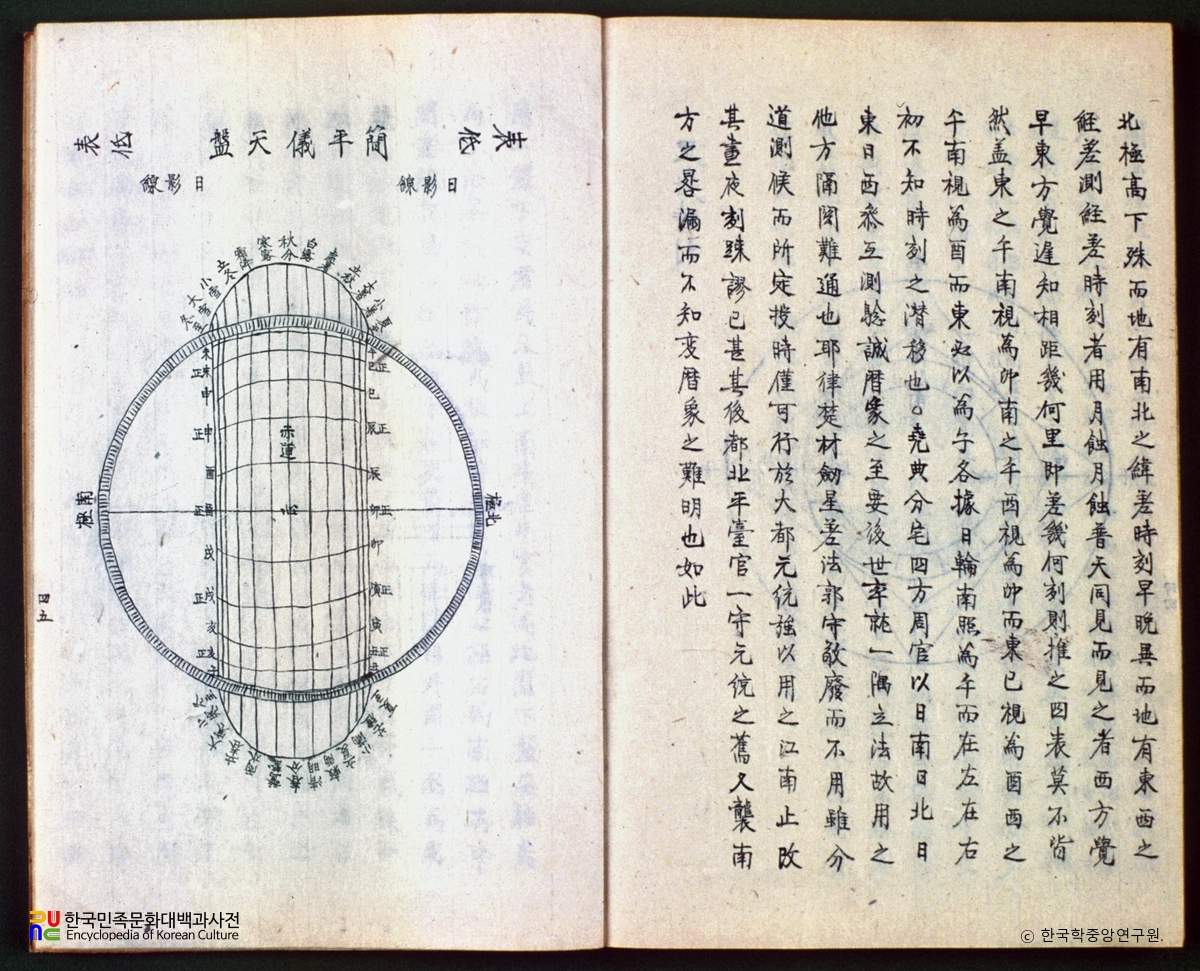 北極高下殊而地有南北之緯差時刻早晚異而地有東西之
經差測經差時刻者用月蝕月蝕普天同見而見之者西方覺
早東方覺遲知相距幾何里即差幾何刻則推之四表莫不皆
然盖東之午南視為卯南之午酉視為卯而東已視為酉西之
午南視為酉而東必以為午各據日輪南照為午而在左在右
初不知時刻之潜移也。堯典分宅四方周官以日南日北日
東日西叅互測驗誠曆象之至要後世率眂一隅立法故用之
他方隔閡難通也耶律楚材剏星差法郭守敬廢而不用雖分
道測候而所定授時僅可行於大都元統強以用之江南止改
其晝夜刻殊謬已甚其後都北平臺官一守元統之舊又襲南
方之晷漏而不知变曆象之難明也如此
表低
簡平儀天盤
表低
日影線
日影線
夏至
小暑
大暑
立秋
白露
秋分
寒露
立冬
小雪
大雪
冬至
正
巳
正
辰
正
卯
正
未
正
申
正
申
酉
正
戌
正
亥
赤道
心
北極
南極
清明
春分
四五
한국민족문화대백과사전
Encyclopedia of Korean Culture
ⓒ 한국학중앙연구원.